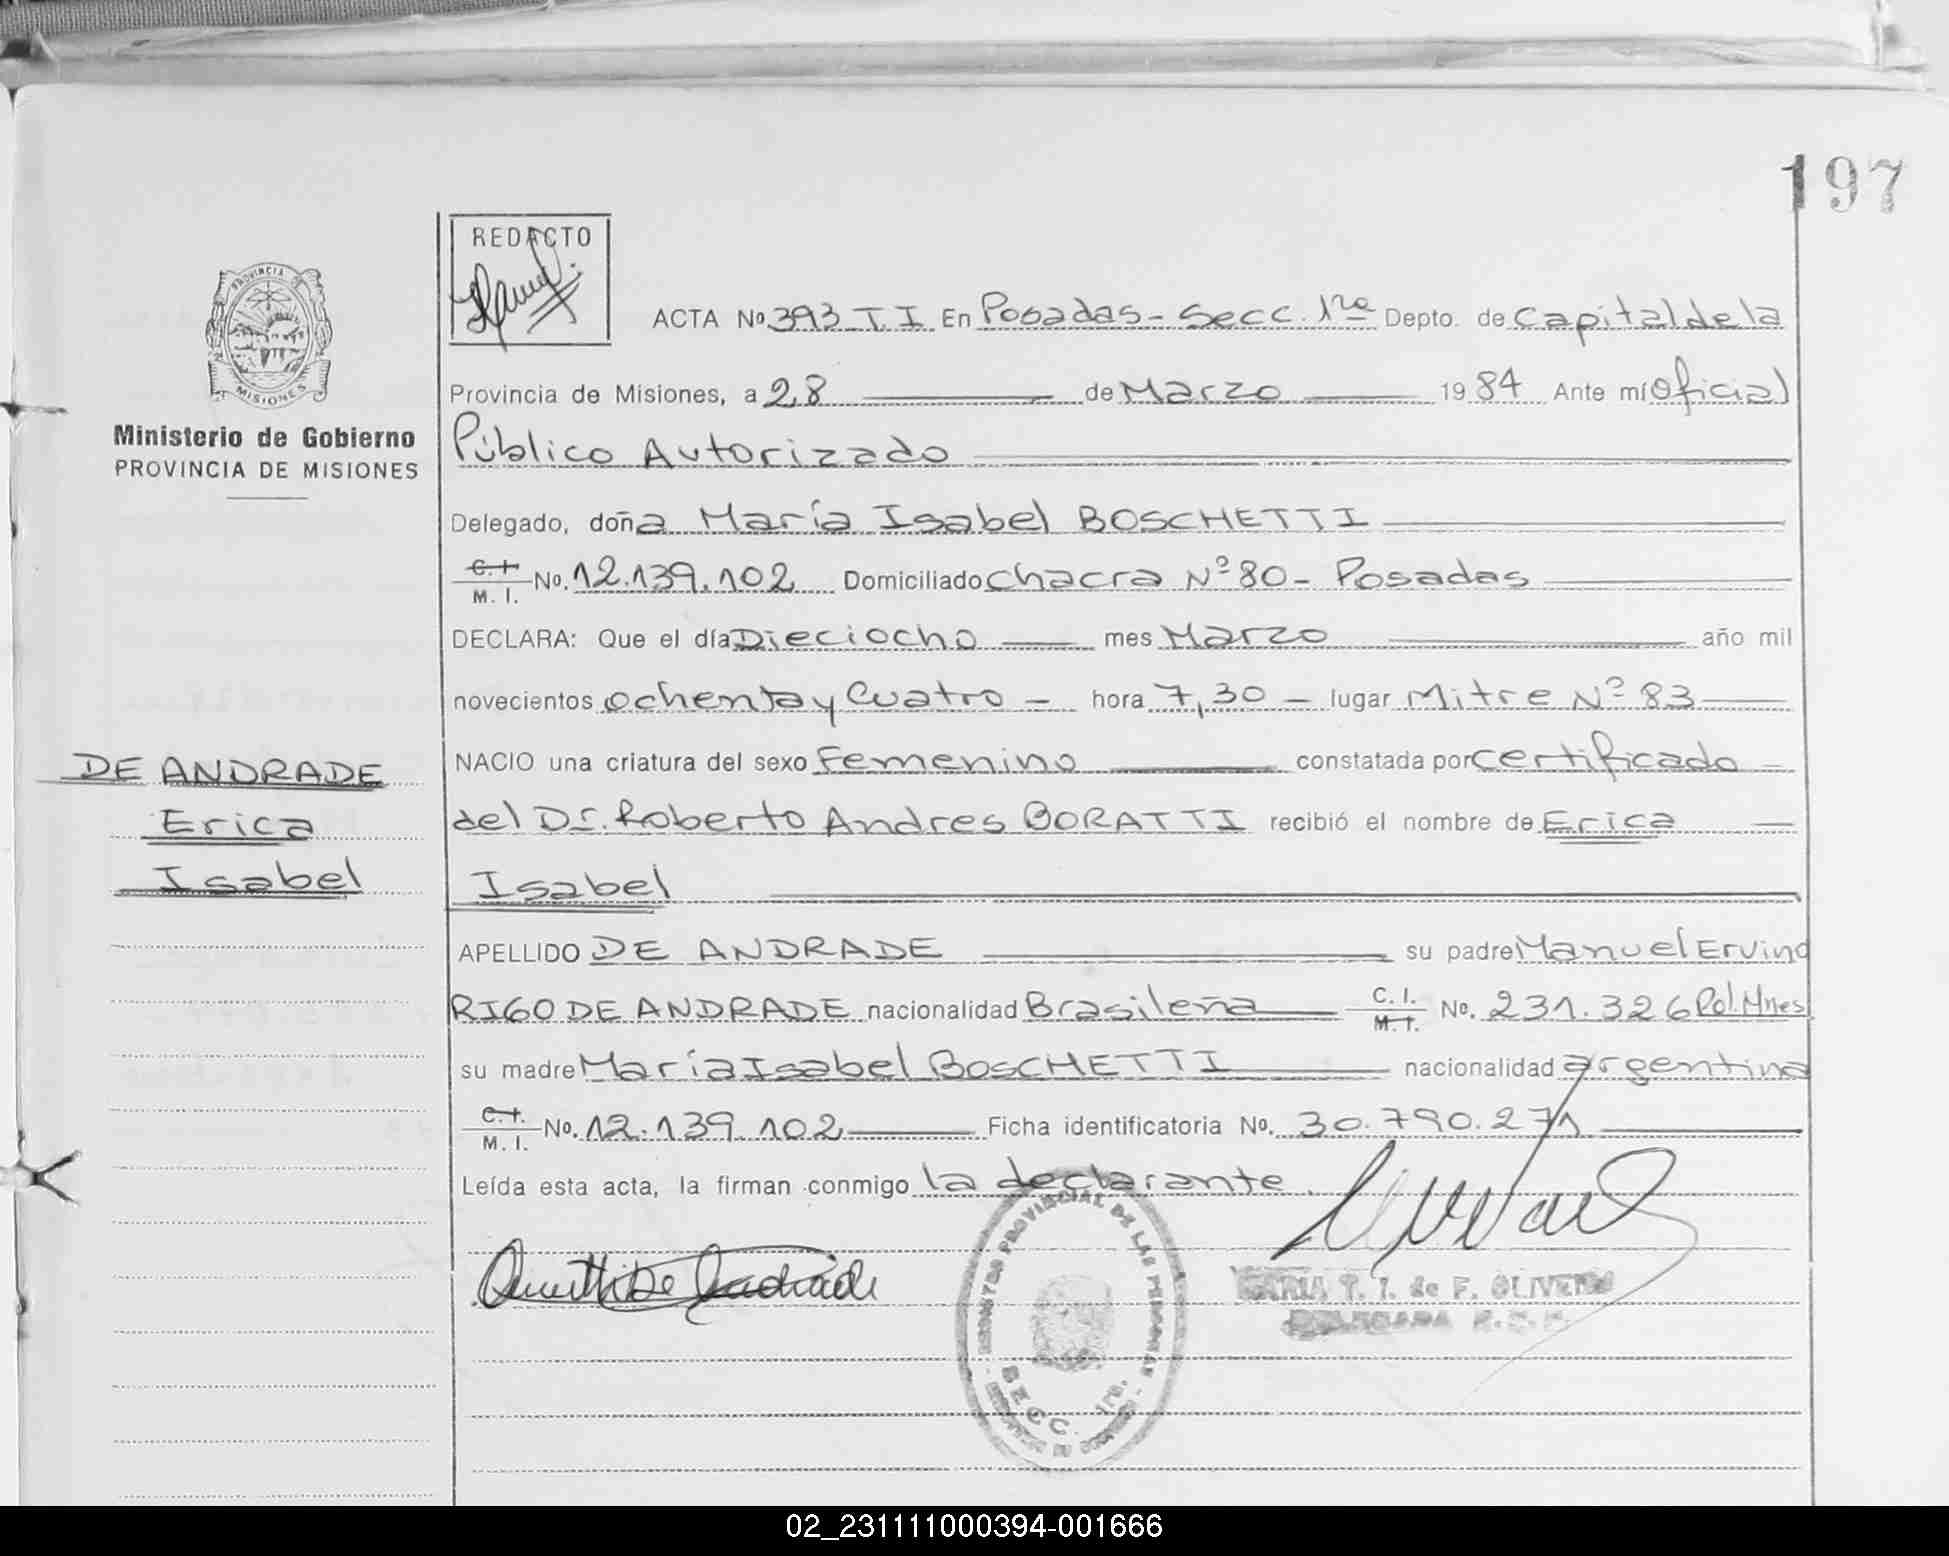 197
REDACTO
PROVINCIA DE
MISIONES
Ministerio de Gobierno
PROVINCIA DE MISIONES
ACTA No 393 T I En Posadas - Secc. 1ra Depto. de Capital de la
Provincia de Misiones, a 28 de Marzo 1984 Ante mí Oficial
Público Autorizado
Delegado, doña María Isabel BOSCHETTI
C. I. M. I. No. 12.139.102 Domiciliado Chacra Nº 80 - Posadas
DECLARA: Que el día Dieciocho mes Marzo año mil
novecientos ochenta y Cuatro - hora 7,30 - lugar Mitre Nº 83
NACIO una criatura del sexo Femenino constatada por certificado
del Dr. Roberto Andres BORATTI recibió el nombre de Erica
Isabel
DE ANDRADE
Erica
Isabel
APELLIDO DE ANDRADE su padre Manuel Ervino
RIGO DE ANDRADE nacionalidad Brasileña C. I. M. I. No. 231.326 Pol. Mnes
su madre María Isabel BOSCHETTI nacionalidad argentina
C. I. M. I. No. 12.139.102 Ficha identificatoria No. 30.790.271
Leída esta acta, la firman conmigo la declarante.
PROVINCIAL DE LAS PERSONAS
SECC. 1ra.
MARIA T. I. de F. OLIVEIRA
DELEGADA
02_231111000394-001666